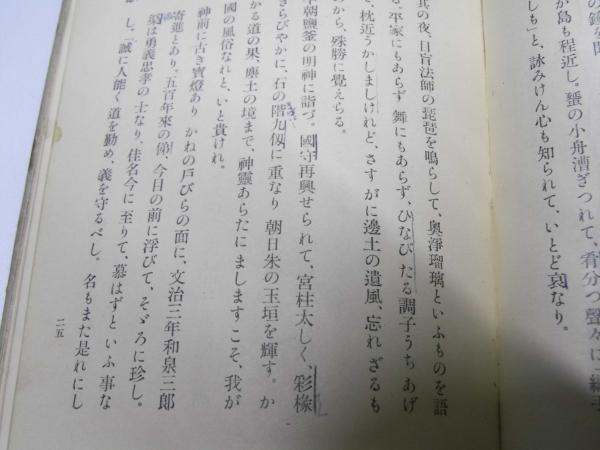 の鐘を聞
が島も程近し。蜑の小舟漕ぎつれて、肴分つ聲々に
しも」と、詠みけん心も知られて、いとど哀なり。
其の夜、目盲法師の琵琶を鳴らして、奥淨瑠璃といふものを語
る。平家にもあらず、舞にもあらず、ひなびたる調子うちあげ
て、枕近うかしましけれど、さすがに邊土の遺風、忘れざるも
のから、殊勝に覺えらる。
早朝鹽釜の明神に詣づ。國守再興せられて、宮柱太しく、彩椽
きらびやかに、石の階九仭に重なり、朝日朱の玉垣を輝す。か
かる道の果、塵土の境まで、神靈あらたにましますこそ、我が
國の風俗なれと、いと貴けれ。
神前に古き寶燈あり、かねの戸びらの面に、文治三年和泉三郎
寄進とあり、五百年來の俤、今日の前に浮びて、そゞろに珍し。
渠は勇義忠孝の士なり、佳名今に至りて、慕はずといふ事な
し、「誠に人能く道を勤め、義を守るべし。名もまた是れにし
二五